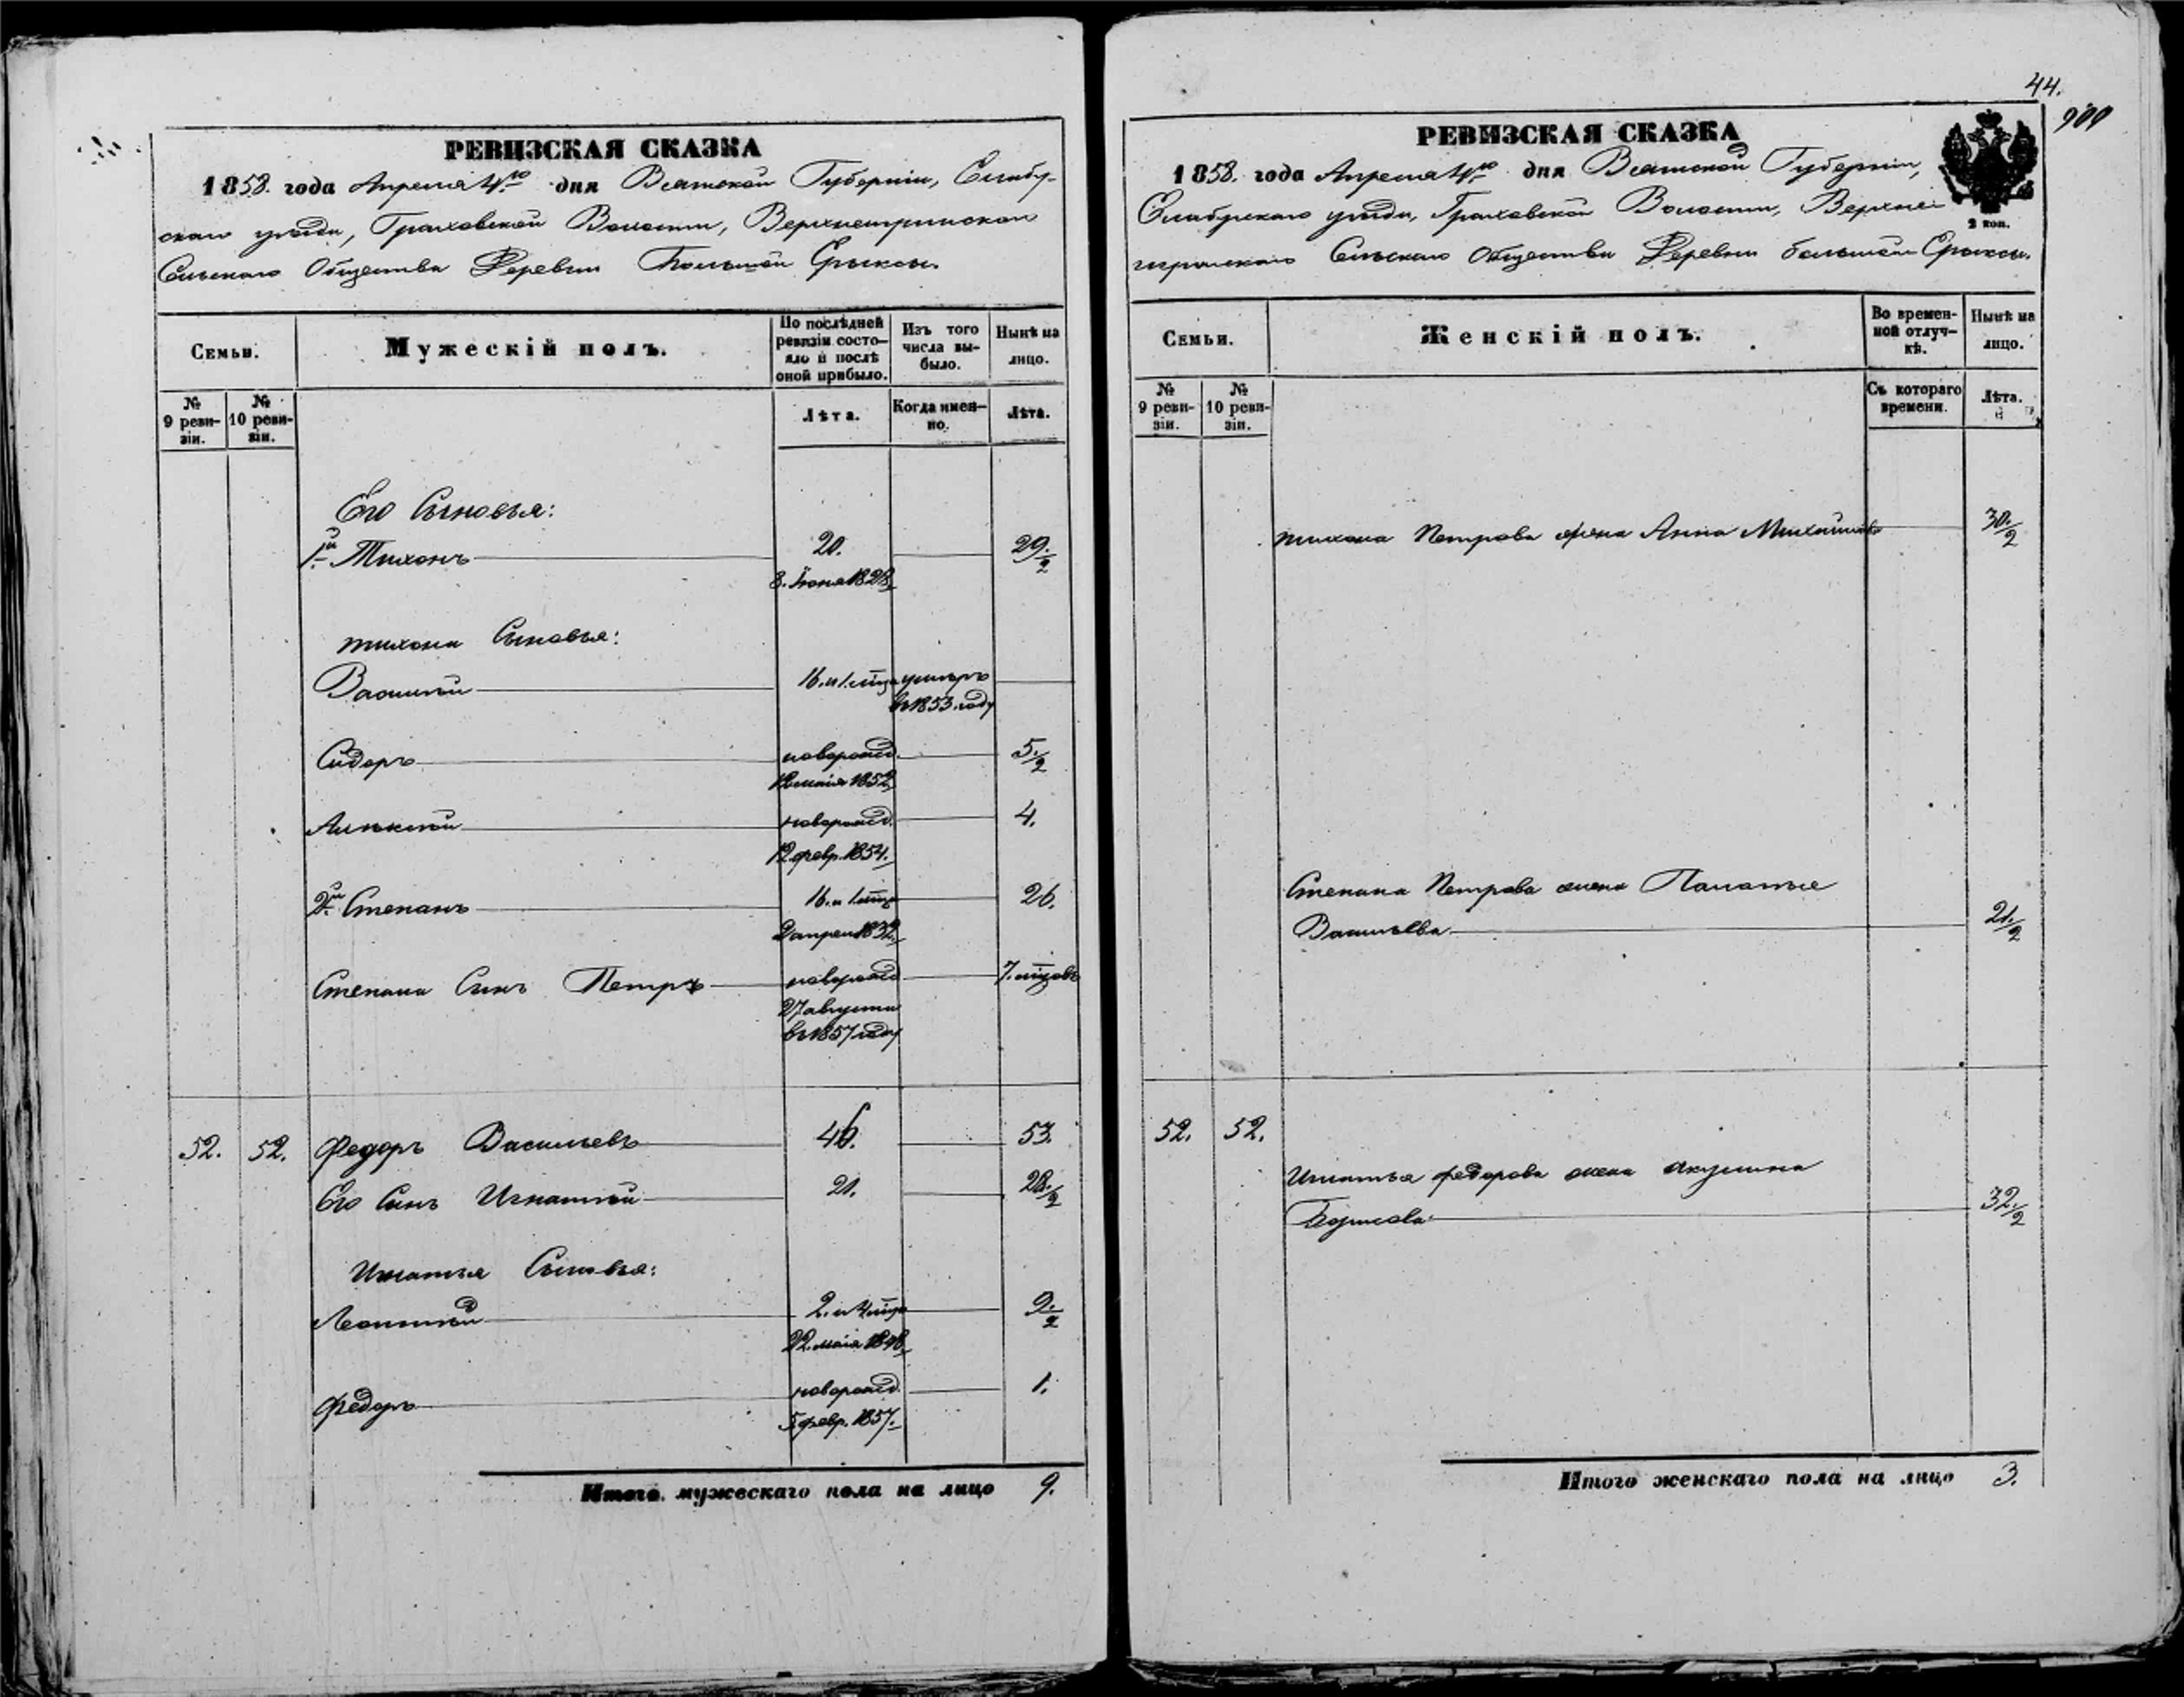 РЕВИЗСКАЯ СКАЗКА
1858. года Апреля 4го дня Вятской Губернии, Елабу-
скаго уезда, Граховской Волости, Верхнеигринскаго
Сельскаго Общества Деревни Большой Ерыксы.
Семьи.
Мужескій полъ.
По послѣдней ревизіи состо-яло и послѣ оной прибыло.
Изъ того числа вы-было.
Нынѣ на лицо.
№ 9 реви-зіи.
№ 10 реви-зіи.
Лѣта.
Когда имен-но.
Лѣта.
Его Сыновья:
1й Тихонъ 20. 29./2
8. Іюня 1828
тихона Сыновья:
Василій 16. и 1. мца умеръ
въ 1853. году
Сидоръ новорожд. 5./2
мaія 1852
Алексѣй новорожд. 4.
12 февр. 1854.
2й Степанъ 16. и 1 мца 26.
2 апрел 1832
Степана Сынъ Петръ новорожд 7. мцовъ
27 августа
въ 1857 году
52. 52. Федоръ Васильевъ 46. 53.
Его Сынъ Игнатій 21. 28./2
Игнатья Сыновья:
Леонтій 2. и 4 мца 9./2
22. маія 1848
Федоръ новорожд. 1.
5 февр. 1857.
Итого мужескаго пола на лицо 9.
44.
909
РЕВИЗСКАЯ СКАЗКА
1858. года Апреля 4го дня Вятской Губернии,
Елабускаго уезда, Граховской Волости, Верхне-
игринскаго Сельскаго Общества Деревни большой Ерыксы.
2 коп.
Семьи.
Женскій полъ.
Во времен-ной отлуч-кѣ.
Нынѣ на лицо.
№ 9 реви-зіи.
№ 10 реви-зіи.
Съ котораго времени.
Лѣта.
тихона Петрова жена Анна Михайлова 30./2
Степана Петрова жена Палатье
Васильева 21./2
52. 52.
Игнатья федорова жена Акулина
Борисова 32./2
Итого женскаго пола на лицо 3.